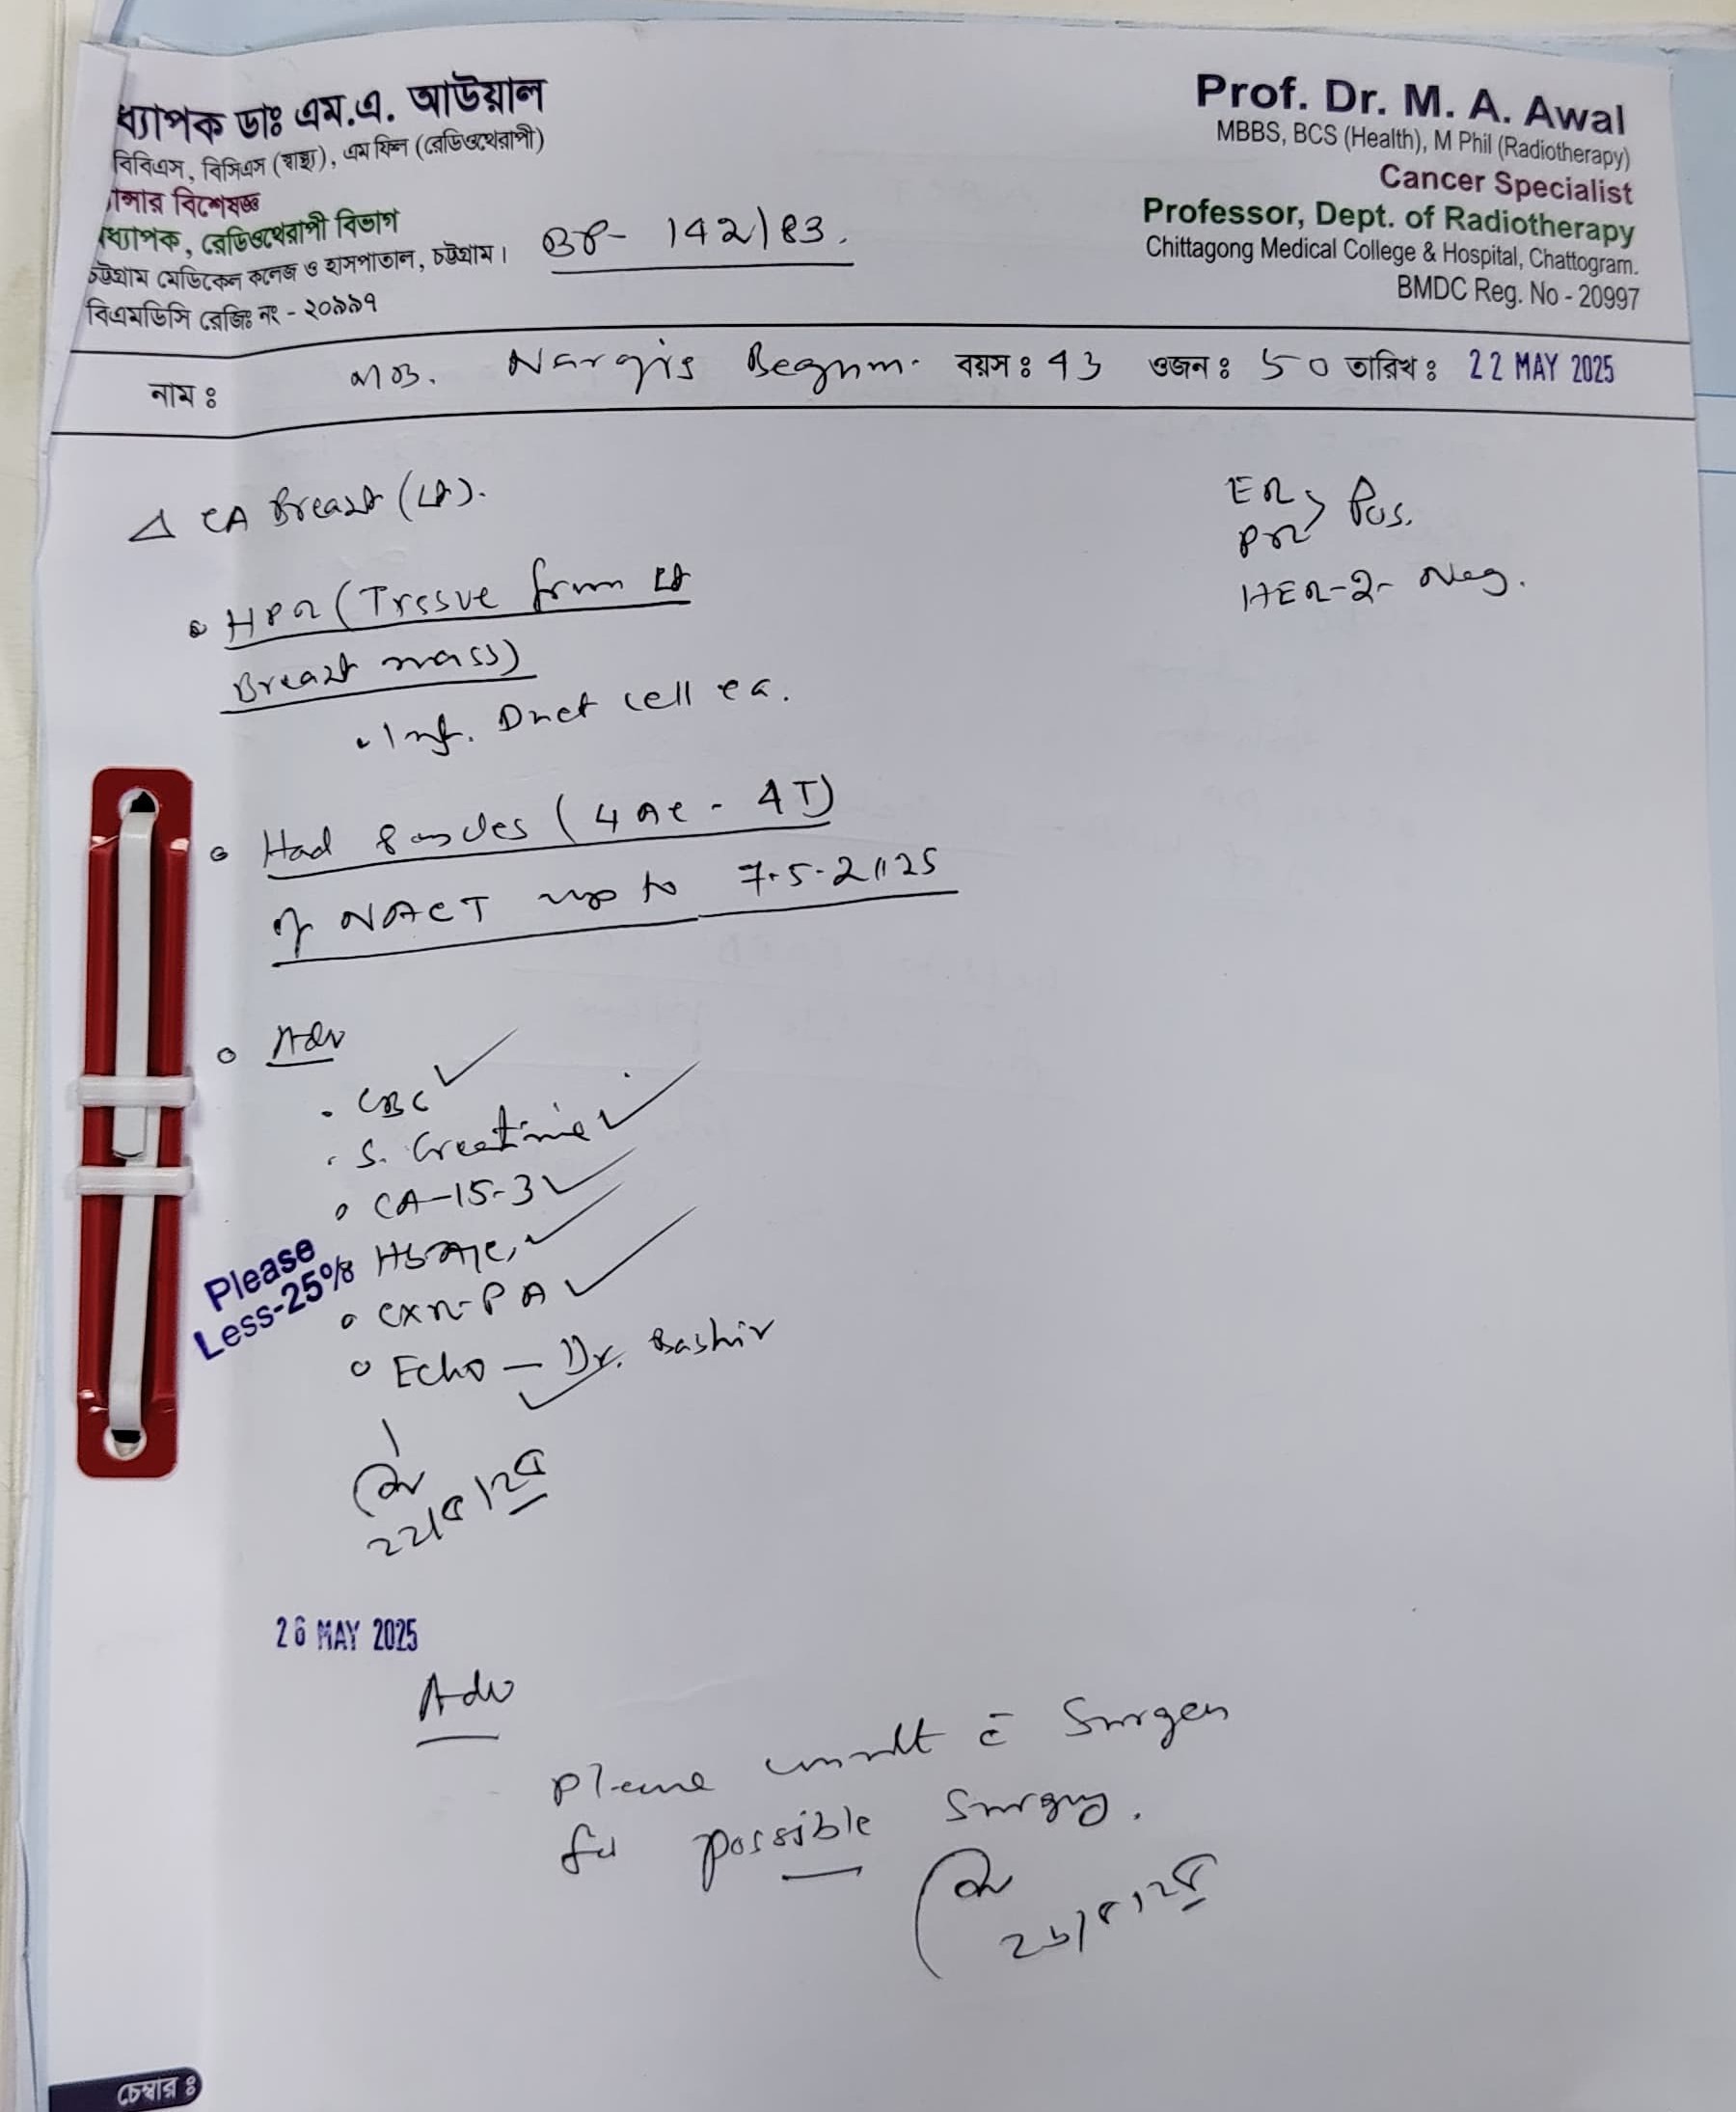 ধ্যাপক ডাঃ এম.এ. আউয়াল
বিবিএস, বিসিএস (স্বাস্থ্য), এম ফিল (রেডিওথেরাপী)
ান্সার বিশেষজ্ঞ
ধ্যাপক, রেডিওথেরাপী বিভাগ
চট্টগ্রাম মেডিকেল কলেজ ও হাসপাতাল, চট্টগ্রাম।
বিএমডিসি রেজিঃ নং - ২০৯৯৭
BP- 142/83.
Prof. Dr. M. A. Awal
MBBS, BCS (Health), M Phil (Radiotherapy)
Cancer Specialist
Professor, Dept. of Radiotherapy
Chittagong Medical College & Hospital, Chattogram.
BMDC Reg. No - 20997
নামঃ Nargis Begum. বয়সঃ 43 ওজনঃ 50 তারিখঃ 22 MAY 2025
Δ CA Breast (Lt).
ER > Pos.
PR
HER-2- Neg.
HPR (Tissue from Lt
Breast mass)
Inf. Duct cell ca.
Had 8 cycles (4 AC - 4T)
of NACT up to 7.5.2025
Adv
CBC ✓
S. Creatinine ✓
CA-15-3 ✓
HbA1c, ✓
CXR-PA ✓
Echo – Dr. Bashir ✓
Please
Less-25%
22/5/25
26 MAY 2025
Adv
Please consult c̄ Surgeon
for possible Surgery.
26/5/25
চেম্বারঃ